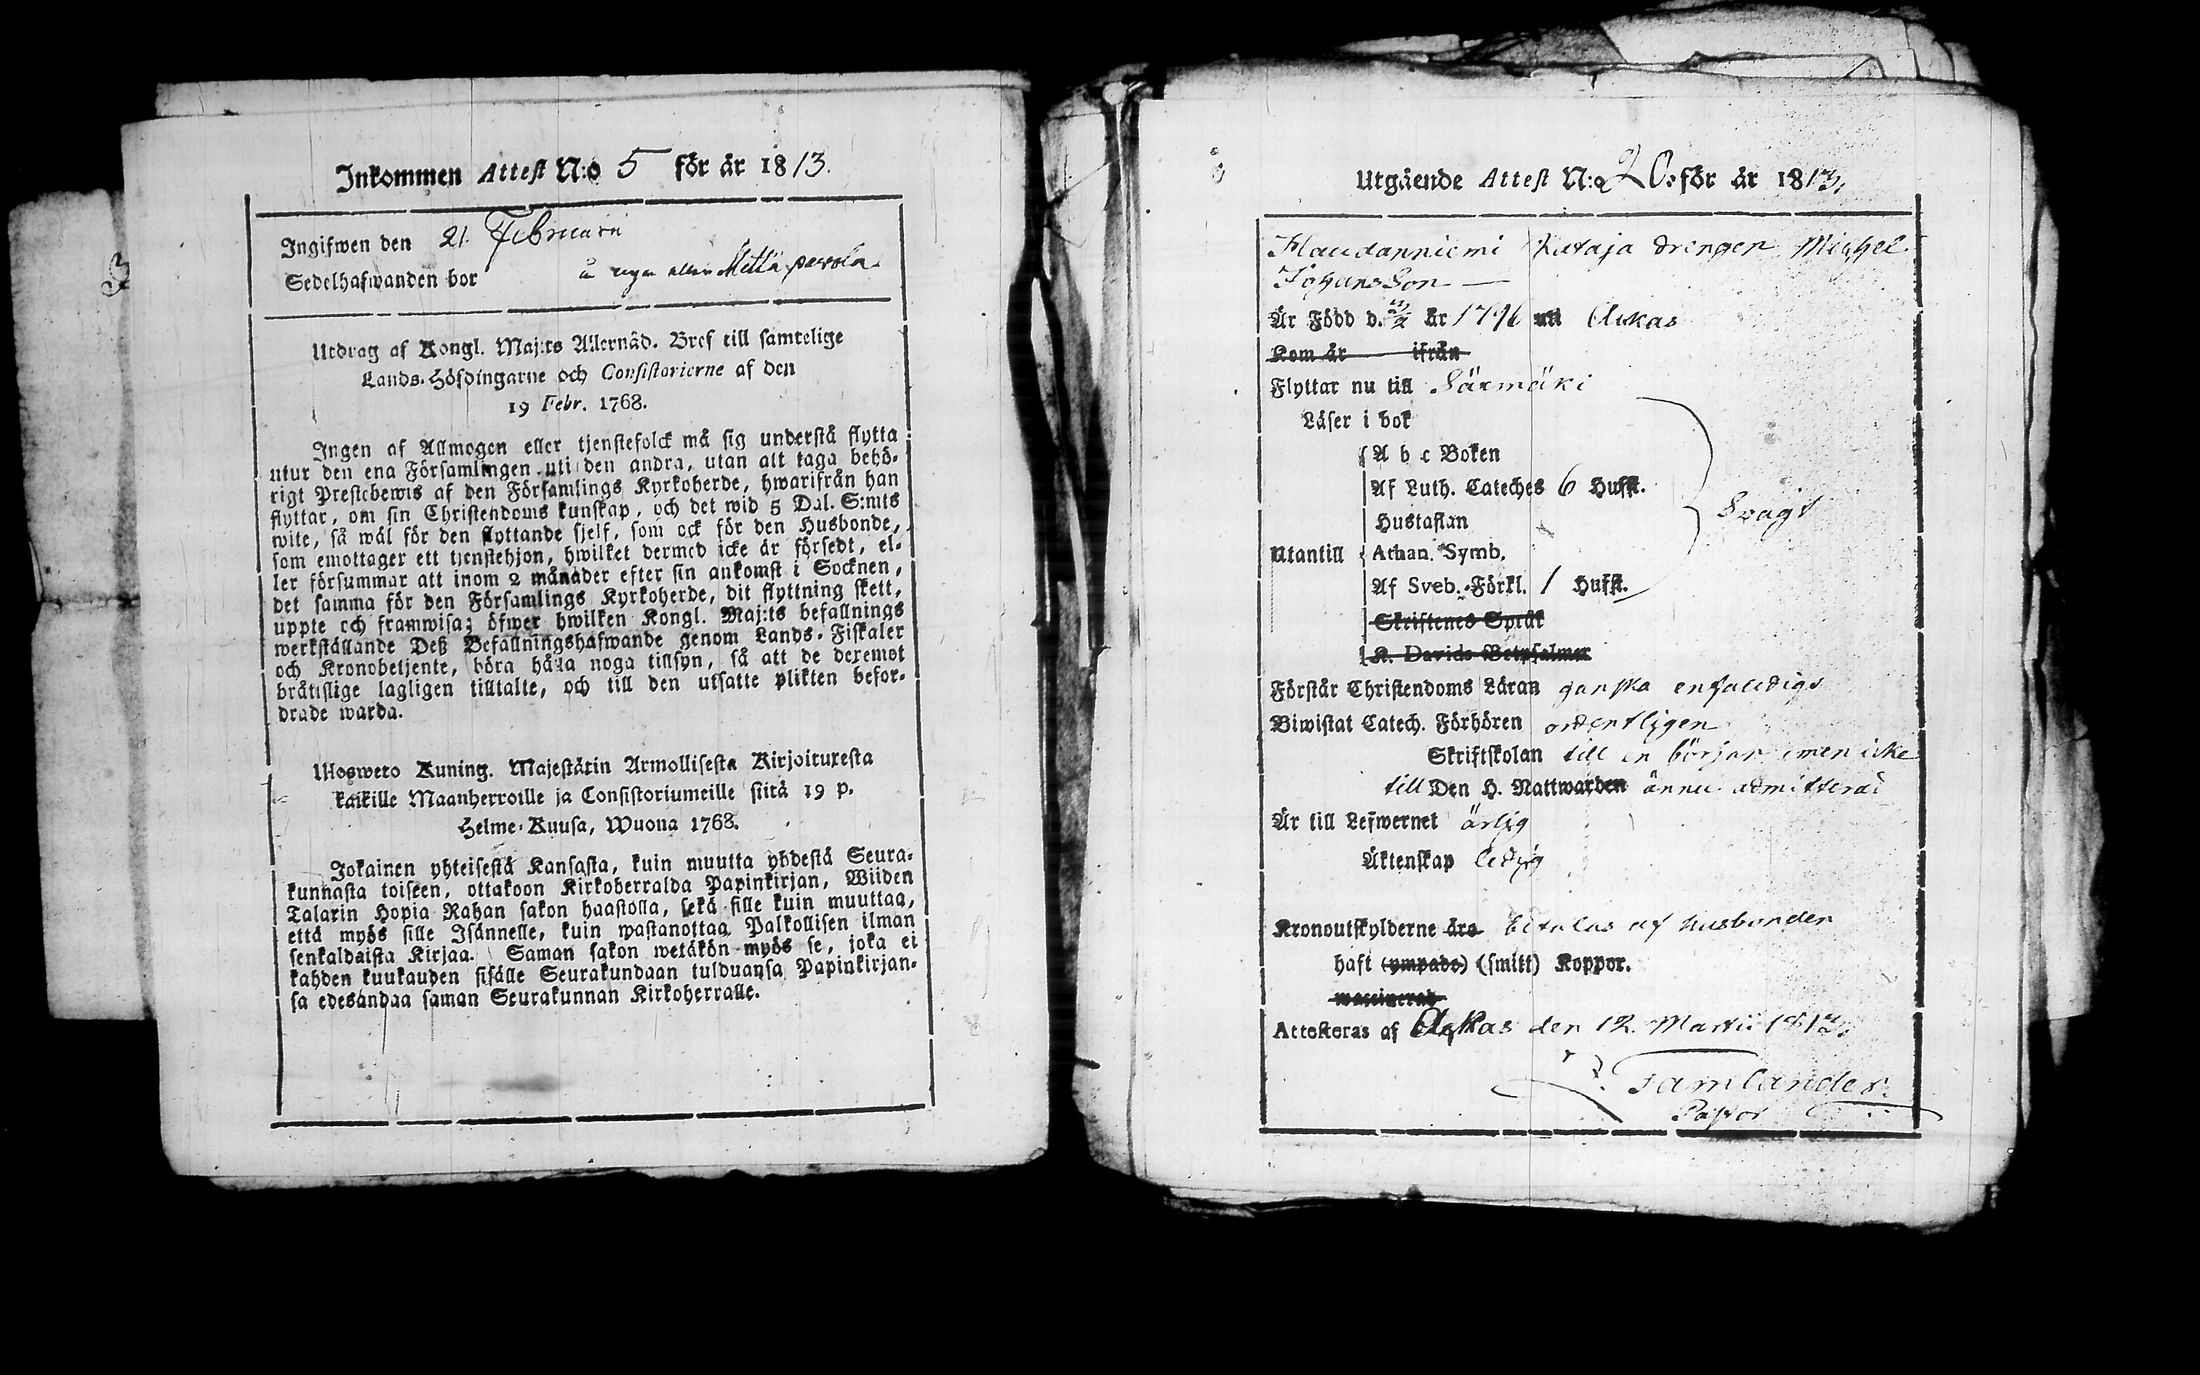 Inkommen Attest N:o 5 för år 1813.
Ingifwen den 21. Februarii
Sedelhafwanden bor
Utdrag af Kongl. Maj:ts Allernåd. Bref till samtelige
Lands-Höfdingarne och Consistorierne af den
19 Febr. 1768.
Ingen af Allmogen eller tjenstefolck må sig understå flytta
utur den ena Församlingen uti den andra, utan att taga behö-
rigt Prestebewis af den Församlings Kyrkoherde, hwarifrån han
flyttar, om sin Christendoms kunskap, och det wid 5 Dal. S:mts
wite, så wäl för den flyttande sjelf, som ock för den Husbonde,
som emottager ett tjenstehjon, hwilket dermed icke är försedt, el-
ler försummar att inom 2 månader efter sin ankomst i Socknen,
det samma för den Församlings Kyrkoherde, dit flyttning skett,
uppte och framwisa; öfwer hwilken Kongl. Maj:ts befallnings
werkställande Deß Befallningshafwande genom Lands-Fiskaler
och Kronobetjente, böra hålla noga tillsyn, så att de deremot
bråtislige lagligen tilltalte, och till den utsatte plikten befor-
drade warda.
Uloswero Kuning. Majestätin Armollisesta Kirjoituxesta
kaikille Maanherroille ja Consistoriumeille siitä 19 p.
Helme-Kuusa, Wuona 1768.
Jokainen yhteisestä Kansasta, kuin muutta yhdestä Seura-
kunnasta toiseen, ottakoon Kirkoherralda Papinkirjan, Wiiden
Talarin Hopia Rahan sakon haastolla, sekä sille kuin muuttaa,
että myös sille Isännelle, kuin wastanottaa Palkollisen ilman
senkaldaista Kirjaa. Saman sakon wetäkön myös se, joka ei
kahden kuukauden sisälle Seurakundaan tulduansa Papinkirjan-
sa edesandaa saman Seurakunnan Kirkoherralle.
Utgående Attest N:o 20. för år 1813.
Haudanniemi Kataja drengen Michel
Johansson
Är Född d. år 1796 uti Askas
Kom år ifrån
Flyttar nu till Särmäki
Läser i bok
A b c Boken
Af Luth. Cateches 6 Hufst.
Hustaflan
Svagt
Utantill Athan. Symb.
Af Sveb. Förkl. 1 Hufst.
Skriftenes Språk
K. Davids Botpsalmer
Förstår Christendoms Läran ganska enfaldigt
Biwistat Catech. Förhören ordentligen
Skriftskolan till en början men icke
till Den H. Nattwarden ännu admitterad
Är till Lefwernet ärlig
Äktenskap ledig
Kronoutskylderne äro betalas af husbonden
haft (ympade) (smitt) Koppor.
waccinerad
Attesteras af Askas den 12. Martii 1813.
Tamlander.
Pastor